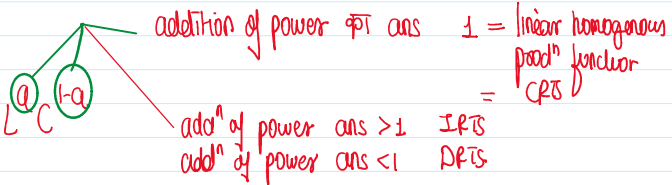 addition of power का ans 1 = linear homogenous
prodⁿ function
= CRTS
a 1-a
L C
addⁿ of power ans >1 IRTS
addⁿ of power ans <1 DRTS